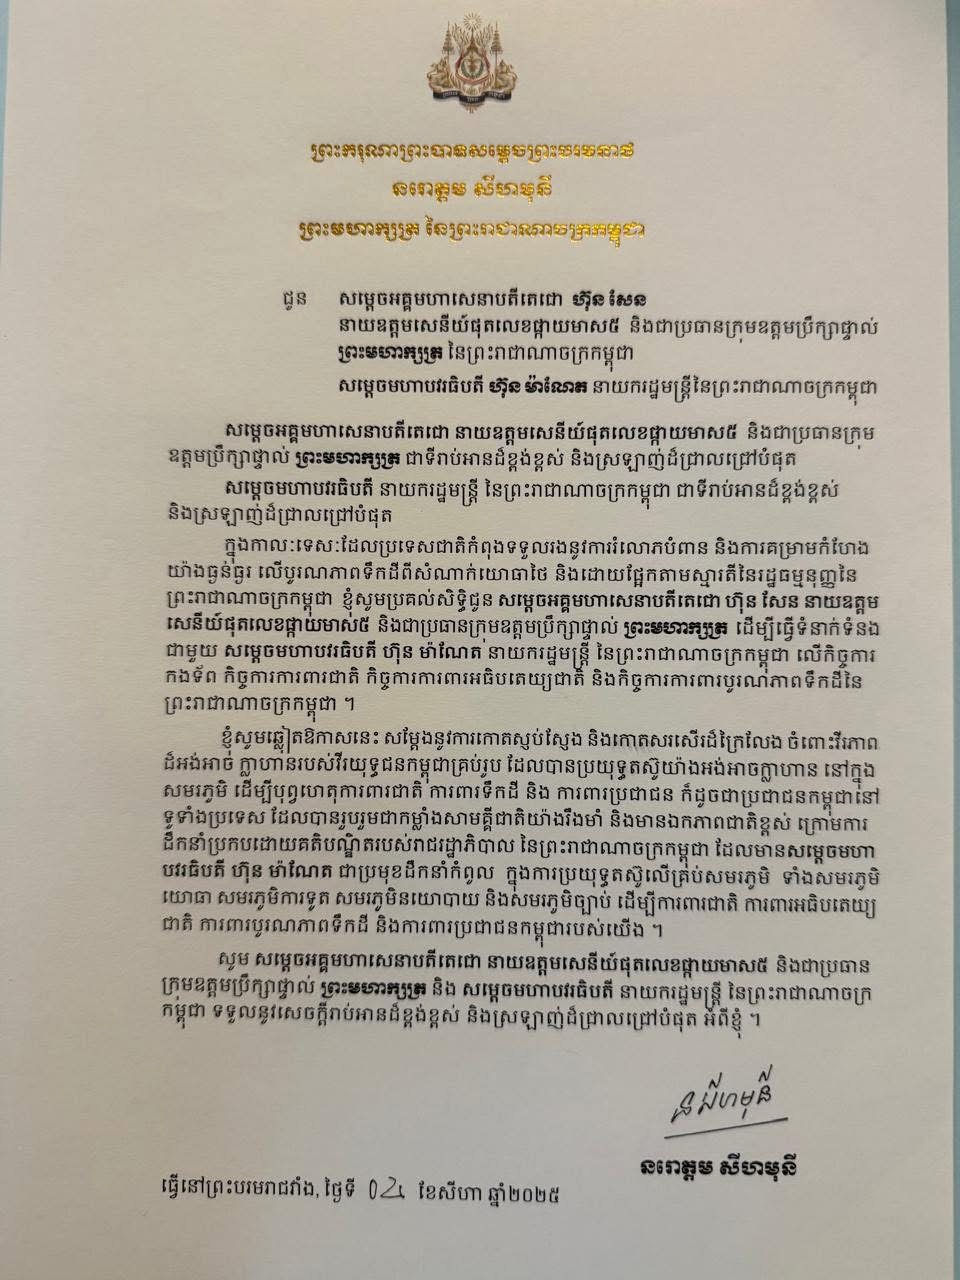 ព្រះករុណាព្រះបាទសម្តេចព្រះបរមនាថ
នរោត្តម សីហមុនី
ព្រះមហាក្សត្រ នៃព្រះរាជាណាចក្រកម្ពុជា
ជូន សម្តេចអគ្គមហាសេនាបតីតេជោ ហ៊ុន សែន
នាយឧត្តមសេនីយ៍ផុតលេខផ្កាយមាស៥ និងជាប្រធានក្រុមឧត្តមប្រឹក្សាផ្ទាល់
ព្រះមហាក្សត្រ នៃព្រះរាជាណាចក្រកម្ពុជា
សម្តេចមហាបវរធិបតី ហ៊ុន ម៉ាណែត នាយករដ្ឋមន្ត្រីនៃព្រះរាជាណាចក្រកម្ពុជា
សម្តេចអគ្គមហាសេនាបតីតេជោ នាយឧត្តមសេនីយ៍ផុតលេខផ្កាយមាស៥ និងជាប្រធានក្រុម
ឧត្តមប្រឹក្សាផ្ទាល់ ព្រះមហាក្សត្រ ជាទីរាប់អានដ៏ខ្ពង់ខ្ពស់ និងស្រឡាញ់ដ៏ជ្រាលជ្រៅបំផុត
សម្តេចមហាបវរធិបតី នាយករដ្ឋមន្ត្រី នៃព្រះរាជាណាចក្រកម្ពុជា ជាទីរាប់អានដ៏ខ្ពង់ខ្ពស់
និងស្រឡាញ់ដ៏ជ្រាលជ្រៅបំផុត
ក្នុងកាលៈទេសៈដែលប្រទេសជាតិកំពុងទទួលរងនូវការរំលោភបំពាន និងការគម្រាមកំហែង
យ៉ាងធ្ងន់ធ្ងរ លើបូរណភាពទឹកដីពីសំណាក់យោធាថៃ និងដោយផ្អែកតាមស្មារតីនៃរដ្ឋធម្មនុញ្ញនៃ
ព្រះរាជាណាចក្រកម្ពុជា ខ្ញុំសូមប្រគល់សិទ្ធិជូន សម្តេចអគ្គមហាសេនាបតីតេជោ ហ៊ុន សែន នាយឧត្តម
សេនីយ៍ផុតលេខផ្កាយមាស៥ និងជាប្រធានក្រុមឧត្តមប្រឹក្សាផ្ទាល់ ព្រះមហាក្សត្រ ដើម្បីធ្វើទំនាក់ទំនង
ជាមួយ សម្តេចមហាបវរធិបតី ហ៊ុន ម៉ាណែត នាយករដ្ឋមន្ត្រី នៃព្រះរាជាណាចក្រកម្ពុជា លើកិច្ចការ
កងទ័ព កិច្ចការការពារជាតិ កិច្ចការការពារអធិបតេយ្យជាតិ និងកិច្ចការការពារបូរណភាពទឹកដីនៃ
ព្រះរាជាណាចក្រកម្ពុជា ។
ខ្ញុំសូមឆ្លៀតឱកាសនេះ សម្តែងនូវការកោតស្ញប់ស្ញែង និងកោតសរសើរដ៏ក្រៃលែង ចំពោះវីរភាព
ដ៏អង់អាច ក្លាហានរបស់វីរយុទ្ធជនកម្ពុជាគ្រប់រូប ដែលបានប្រយុទ្ធតស៊ូយ៉ាងអង់អាចក្លាហាន នៅក្នុង
សមរភូមិ ដើម្បីបុព្វហេតុការពារជាតិ ការពារទឹកដី និង ការពារប្រជាជន ក៏ដូចជាប្រជាជនកម្ពុជានៅ
ទូទាំងប្រទេស ដែលបានរួបរួមជាកម្លាំងសាមគ្គីជាតិយ៉ាងរឹងមាំ និងមានឯកភាពជាតិខ្ពស់ ក្រោមការ
ដឹកនាំប្រកបដោយគតិបណ្ឌិតរបស់រាជរដ្ឋាភិបាល នៃព្រះរាជាណាចក្រកម្ពុជា ដែលមានសម្តេចមហា
បវរធិបតី ហ៊ុន ម៉ាណែត ជាប្រមុខដឹកនាំកំពូល ក្នុងការប្រយុទ្ធតស៊ូលើគ្រប់សមរភូមិ ទាំងសមរភូមិ
យោធា សមរភូមិការទូត សមរភូមិនយោបាយ និងសមរភូមិច្បាប់ ដើម្បីការពារជាតិ ការពារអធិបតេយ្យ
ជាតិ ការពារបូរណភាពទឹកដី និងការពារប្រជាជនកម្ពុជារបស់យើង ។
សូម សម្តេចអគ្គមហាសេនាបតីតេជោ នាយឧត្តមសេនីយ៍ផុតលេខផ្កាយមាស៥ និងជាប្រធាន
ក្រុមឧត្តមប្រឹក្សាផ្ទាល់ ព្រះមហាក្សត្រ និង សម្តេចមហាបវរធិបតី នាយករដ្ឋមន្ត្រី នៃព្រះរាជាណាចក្រ
កម្ពុជា ទទួលនូវសេចក្តីរាប់អានដ៏ខ្ពង់ខ្ពស់ និងស្រឡាញ់ដ៏ជ្រាលជ្រៅបំផុត អំពីខ្ញុំ ។
ន សីហមុនី
នរោត្តម សីហមុនី
ធ្វើនៅព្រះបរមរាជវាំង, ថ្ងៃទី ០២ ខែសីហា ឆ្នាំ២០២៥